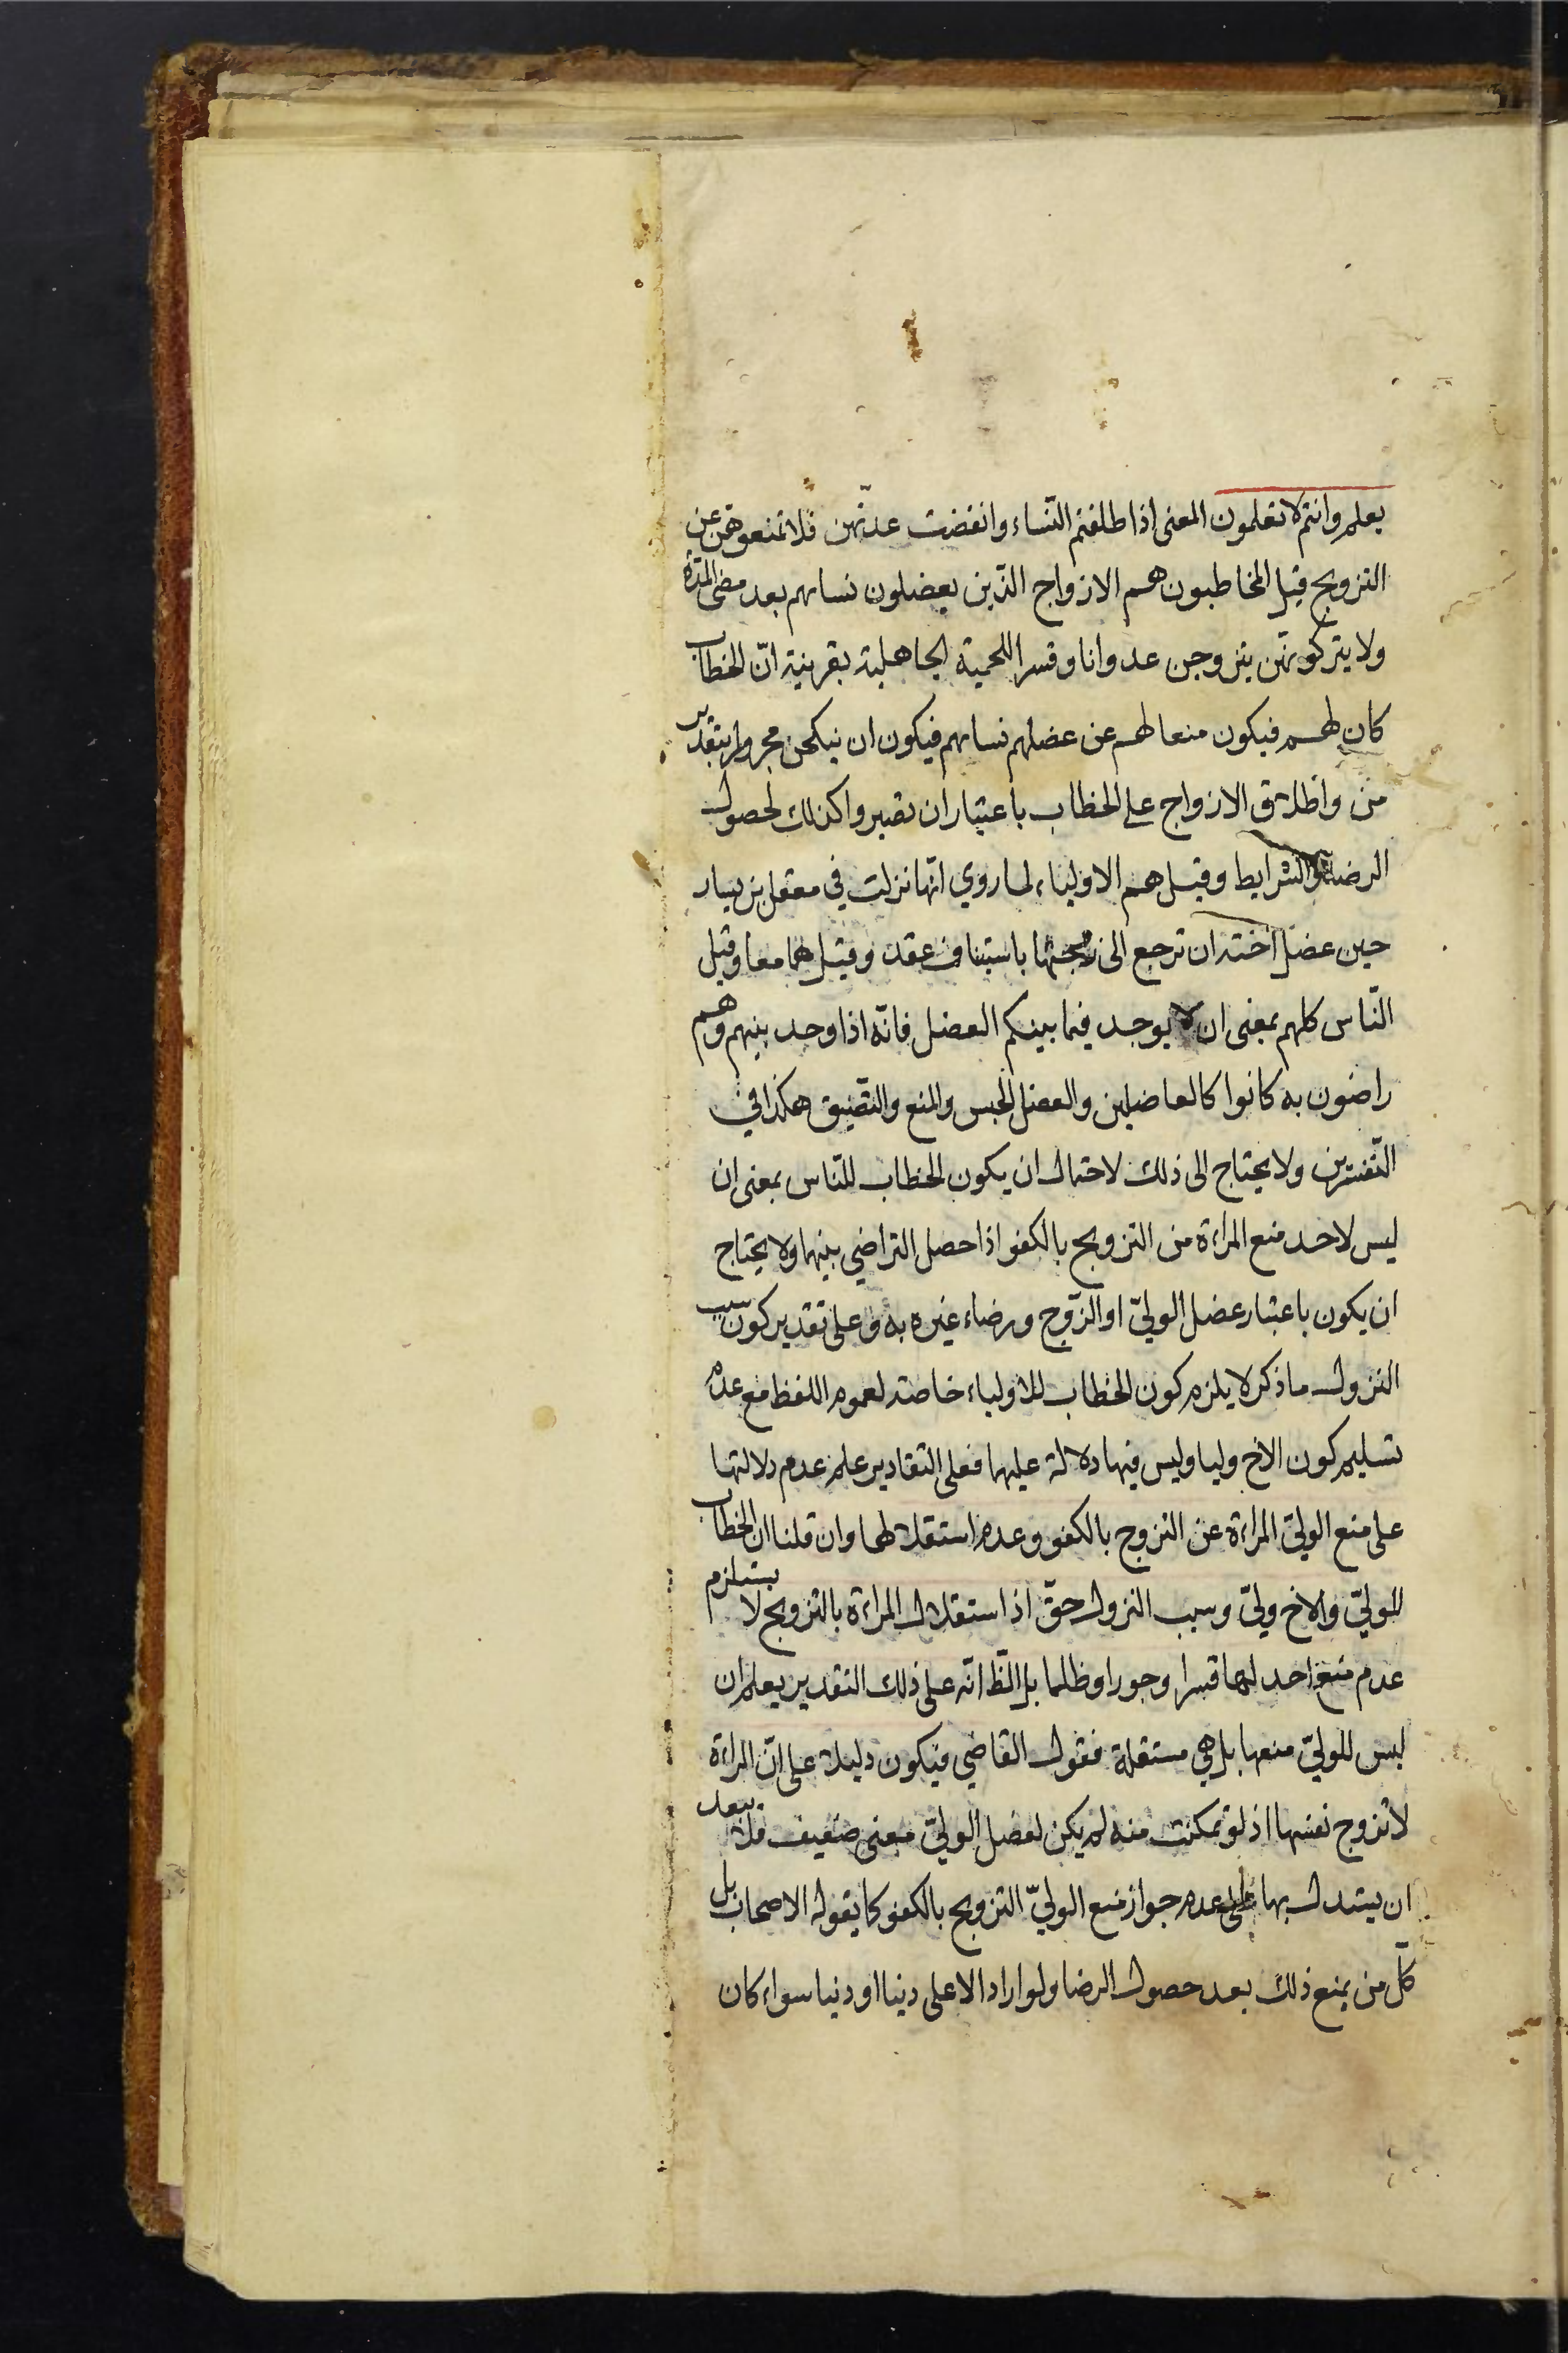 يعلم وانتم لا تعلمون المعنى اذا طلقتم النّساء وانقضت عدتّهن فلا تمنعوهنّ عن
التزويج قيل المخاطبون هم الازواج الذّين يعضلون نساهم بعد مضى المدّة
ولا يتركونهّن يتزوجن عدوانا وقسرا للحمية الجاهلية بقرينة انّ الخطاب
كان لهم فيكون منعا لهم عن عضلهم نساهم فيكون ان ينكحن مجرورا بتقدير
من واطلاق الازواج على الخطاب باعتبار ان تصيروا كذلك لحصول
الرضا والشرايط وقيل هم الاولياء لما روي انّها نزلت في معقل بن يسار
حين عضل اخته ان ترجع الى زوجها باستيناف عقد وقيل هما معا وقيل
النّاس كلهم بمعنى ان لا يوجد فيما بينكم العضل فانّه اذا وجد بينهم وهم
راضون به كانوا كالعاضلين والعضل الحبس والمنع والتّضيق هكذا في
التّفسيرين ولا يحتاج الى ذلك لاحتمال ان يكون الخطاب للنّاس بمعنى ان
ليس لاحد منع المراءة من التزويج بالكفو اذا حصل التراضي بينهما ولا يحتاج
ان يكون باعتبار عضل الوليّ او الزّوج ورضاء غيره به وعلى تقدير كون سبب
النزول ما ذكر لا يلزم كون الخطاب للاولياء خاصة لعموم اللفظ مع عدم
تسليم كون الاخ وليا وليس فيها دلالة عليهما فعلى التقادير علم عدم دلالتها
على منع الوليّ المراءة عن التزوج بالكفو وعدم استقلالها وان قلنا ان الخطاب
للوليّ والاخ وليّ وسبب النزول حقّ اذ استقلال المراءة بالتزويج لا يستلزم
عدم منع احد لها قسرا وجورا وظلما بل الظّ انّه على ذلك التقدير يعلم ان
ليس للوليّ منعها بل هي مستقلة فقول القاضي فيكون دليلا على انّ المراءة
لا تزوج نفسها اذ لو تمكنت منه لم يكن لعضل الوليّ معنى ضعيف فلا يبعد
ان يستدل بها على عدم جواز منع الوليّ التزويج بالكفو كما يقوله الاصحاب بل
كلّ من يمنع ذلك بعد حصول الرضا ولو اراد الاعلى دينا او دنيا سواء كان